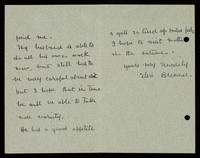 paid me.
My husband is able to
do all his own work
now, but still has to
be very careful about diet
but I hope that in time
he will be able to take
more variety.
He has a good appetite
& gets so tired of
I hope to
in the autumn.
Yours very sincerely